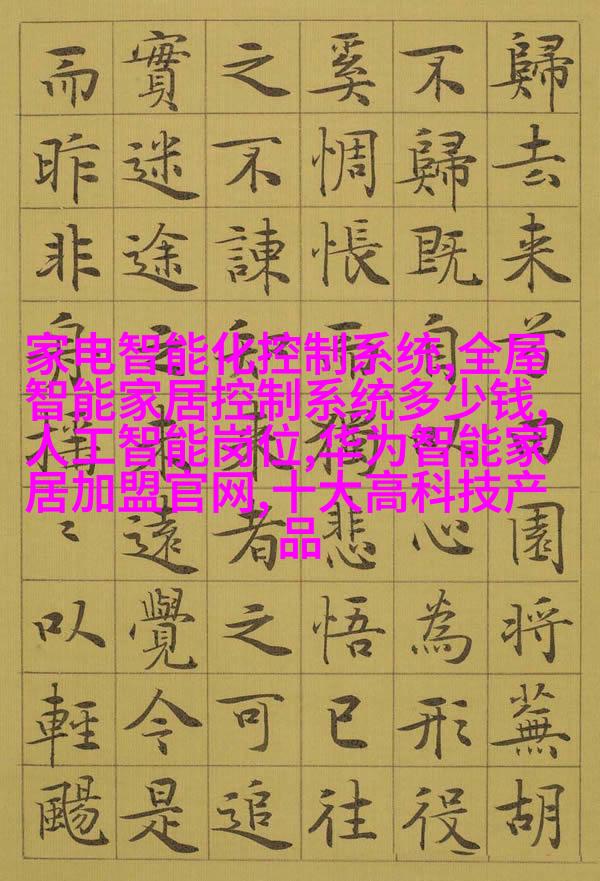 歸去来園将蕪胡
不歸既自以心為形役
奚惆悵獨悲悟已往
之不諫来者之可追
實迷途未遠覺今是
而昨非揺〻以輕颺
家电智能化控制系统,全屋
智能家居控制系统多少钱,
人工智能岗位,华为智能家
居加盟官网,十大高科技产
品